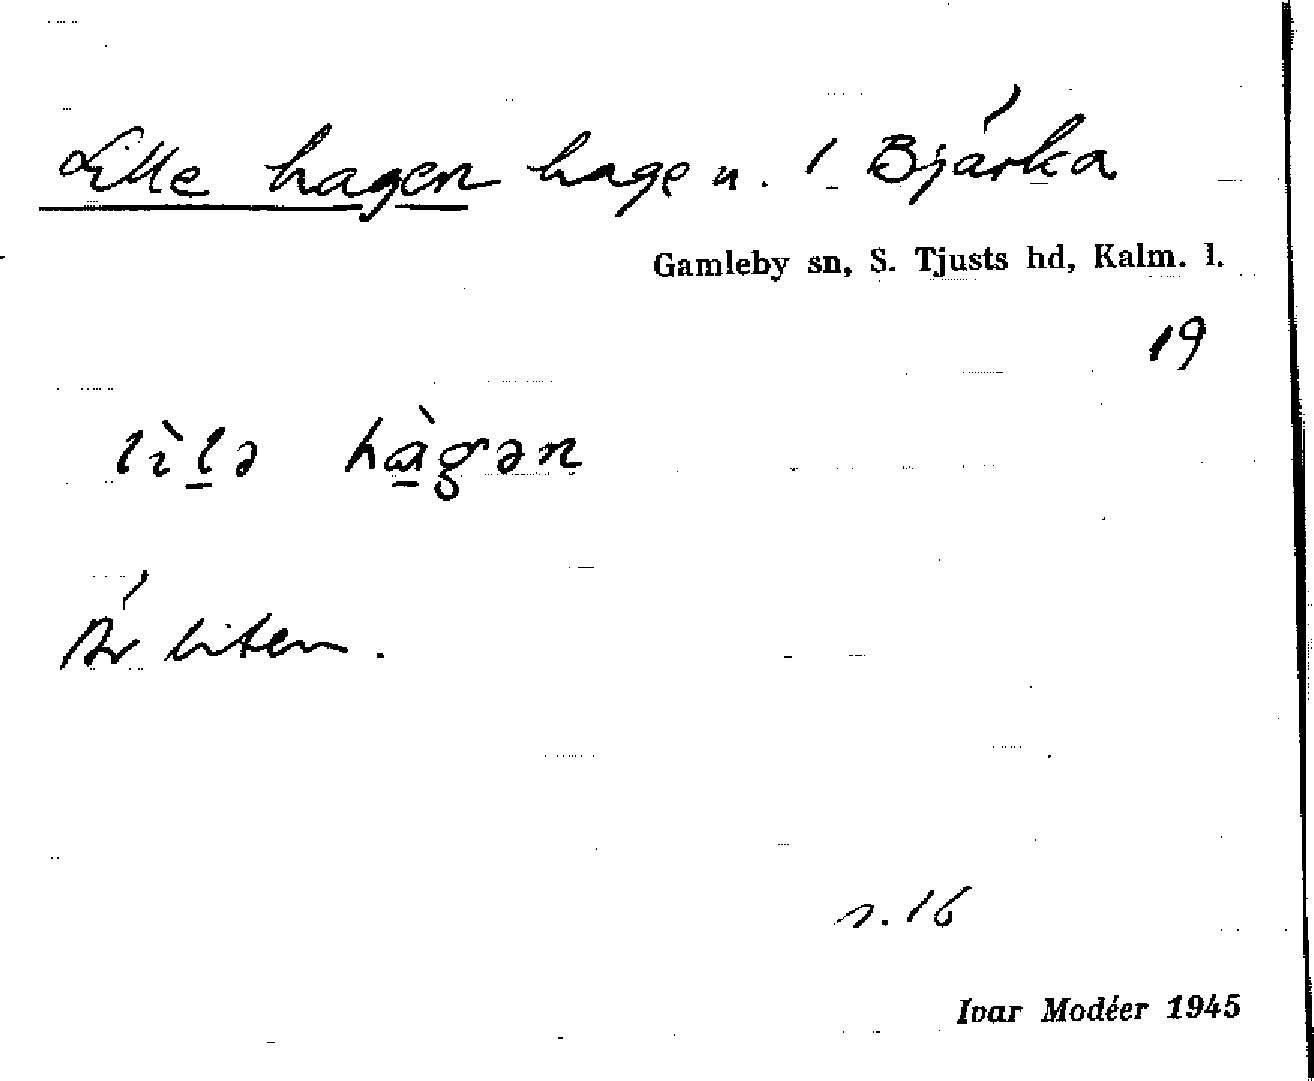 Lille hagen hage n. 1 Bjärka
Gamleby sn, S. Tjusts hd, Kalm. l.
19
lìl̠ə hà̠gən
Är liten.
s. 16
Ivar Modéer 1945